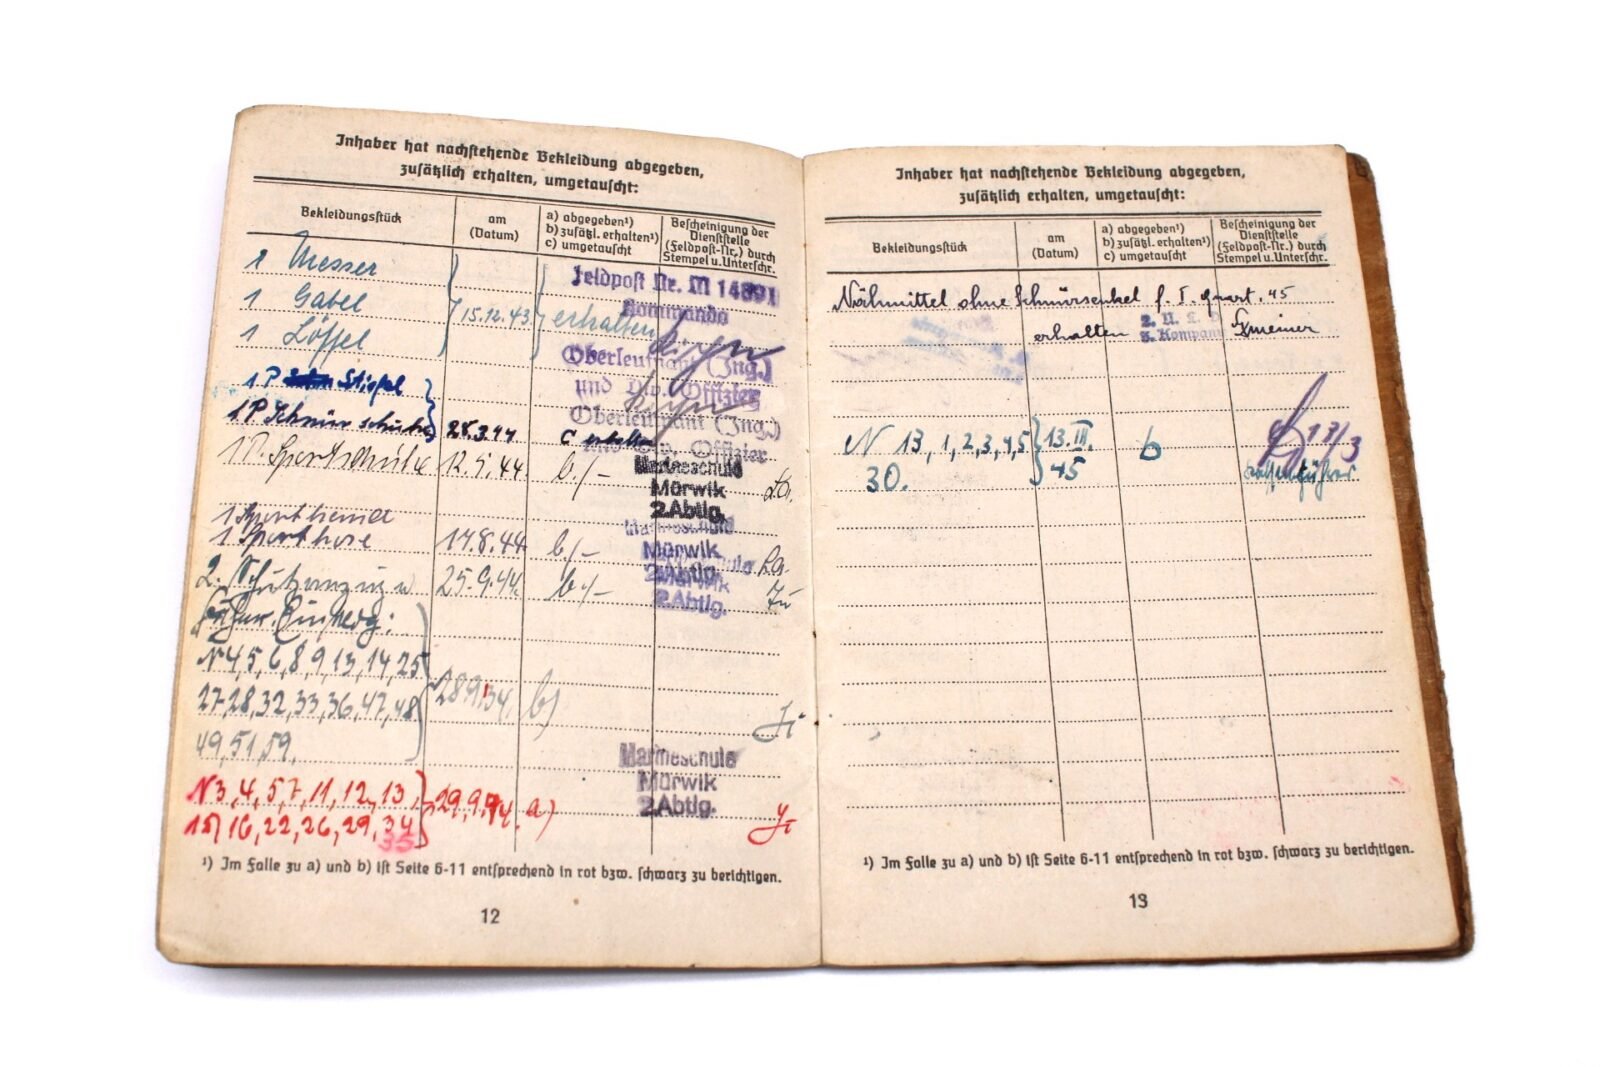 Inhaber hat nachstehende Bekleidung abgegeben,
zusätzlich erhalten, umgetauscht:
Bekleidungsstück
am
(Datum)
a) abgegeben¹)
b) zusätzl. erhalten¹)
c) umgetauscht
Bescheinigung der
Dienststelle
(Feldpost-Nr.) durch
Stempel u. Unterschr.
1 Messer
1 Gabel 15.12.43 erhalten
1 Löffel
Feldpost Nr. M 14891
Kommando
Oberleutnant (Ing.)
und Div. Offizier
1 P Stiefel
1 P Schnürschuhe 28.3.44 c
Oberleutnant (Ing.)
und Div. Offizier
1 P. Sportschuhe 12.5.44 b/-
Marineschule
Mürwik
2.Abtlg.
1 Sporthemd
1 Sporthose 17.8.44 b/-
Marineschule
Mürwik
2.Abtlg.
2. 25.9.44 b/-
Mürwik
2.Abtlg.
N 4, 5, 6, 8, 9, 13, 14, 25
27, 28, 32, 33, 36, 47, 48 b)
49, 51, 59.
Marineschule
Mürwik
2.Abtlg.
N 3, 4, 5, 7, 11, 12, 13, 29.9.44. a)
15, 16, 22, 26, 29, 34
35
¹) Im Falle zu a) und b) ist Seite 6-11 entsprechend in rot bzw. schwarz zu berichtigen.
12
Inhaber hat nachstehende Bekleidung abgegeben,
zusätzlich erhalten, umgetauscht:
Bekleidungsstück
am
(Datum)
a) abgegeben¹)
b) zusätzl. erhalten¹)
c) umgetauscht
Bescheinigung der
Dienststelle
(Feldpost-Nr.) durch
Stempel u. Unterschr.
Nähmittel ohne Schnürsenkel f. I. Quart. 45
erhalten
Kompanie
N 13, 1, 2, 3, 4, 5 13. III. b 17/3
30. 45
¹) Im Falle zu a) und b) ist Seite 6-11 entsprechend in rot bzw. schwarz zu berichtigen.
13